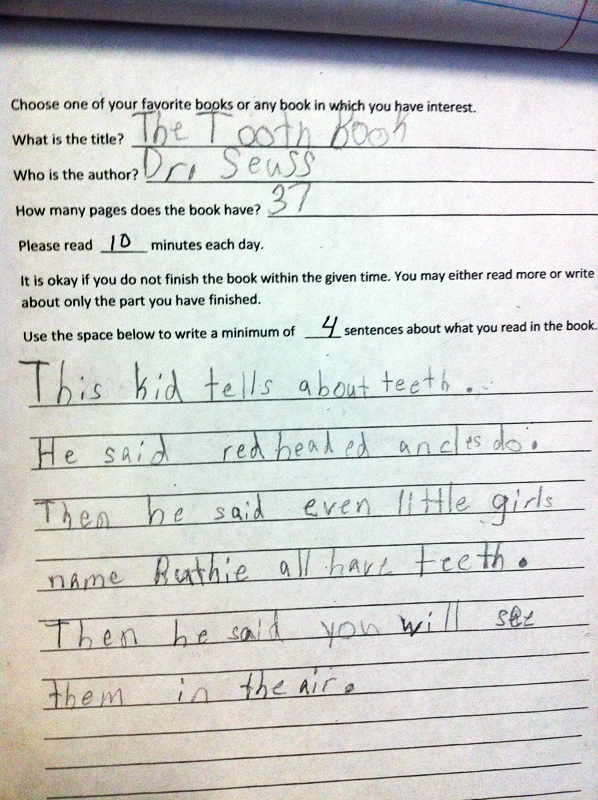 Choose one of your favorite books or any book in which you have interest.
What is the title? The Tooth Book
Who is the author? Dr. Seuss
How many pages does the book have? 37
Please read 10 minutes each day.
It is okay if you do not finish the book within the given time. You may either read more or write
about only the part you have finished.
Use the space below to write a minimum of 4 sentences about what you read in the book.
This kid tells about teeth.
He said red headed ancles do.
Then he said even little girls
name Ruthie all have teeth.
Then he said you will see
them in the air.